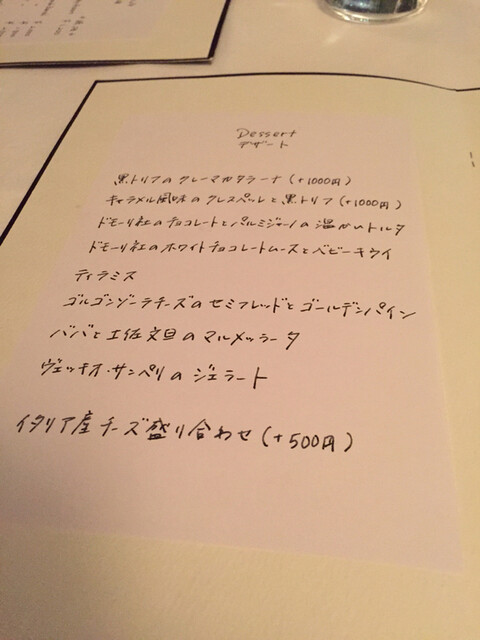 Dessert
デザート
黒トリフのクレーマカタラーナ (+1000円)
キャラメル風味のクレスペッレと黒トリフ (+1000円)
ドモーリ社のチョコレートとパルミジャーノの温かいトルタ
ドモーリ社のホワイトチョコレートムースとベビーキウイ
ティラミス
ゴルゴンゾーラチーズのセミフレッドとゴールデンパイン
ババと土佐文旦のマルメッラータ
ヴェッキオ・サンペリのジェラート
イタリア産チーズ盛り合わせ (+500円)